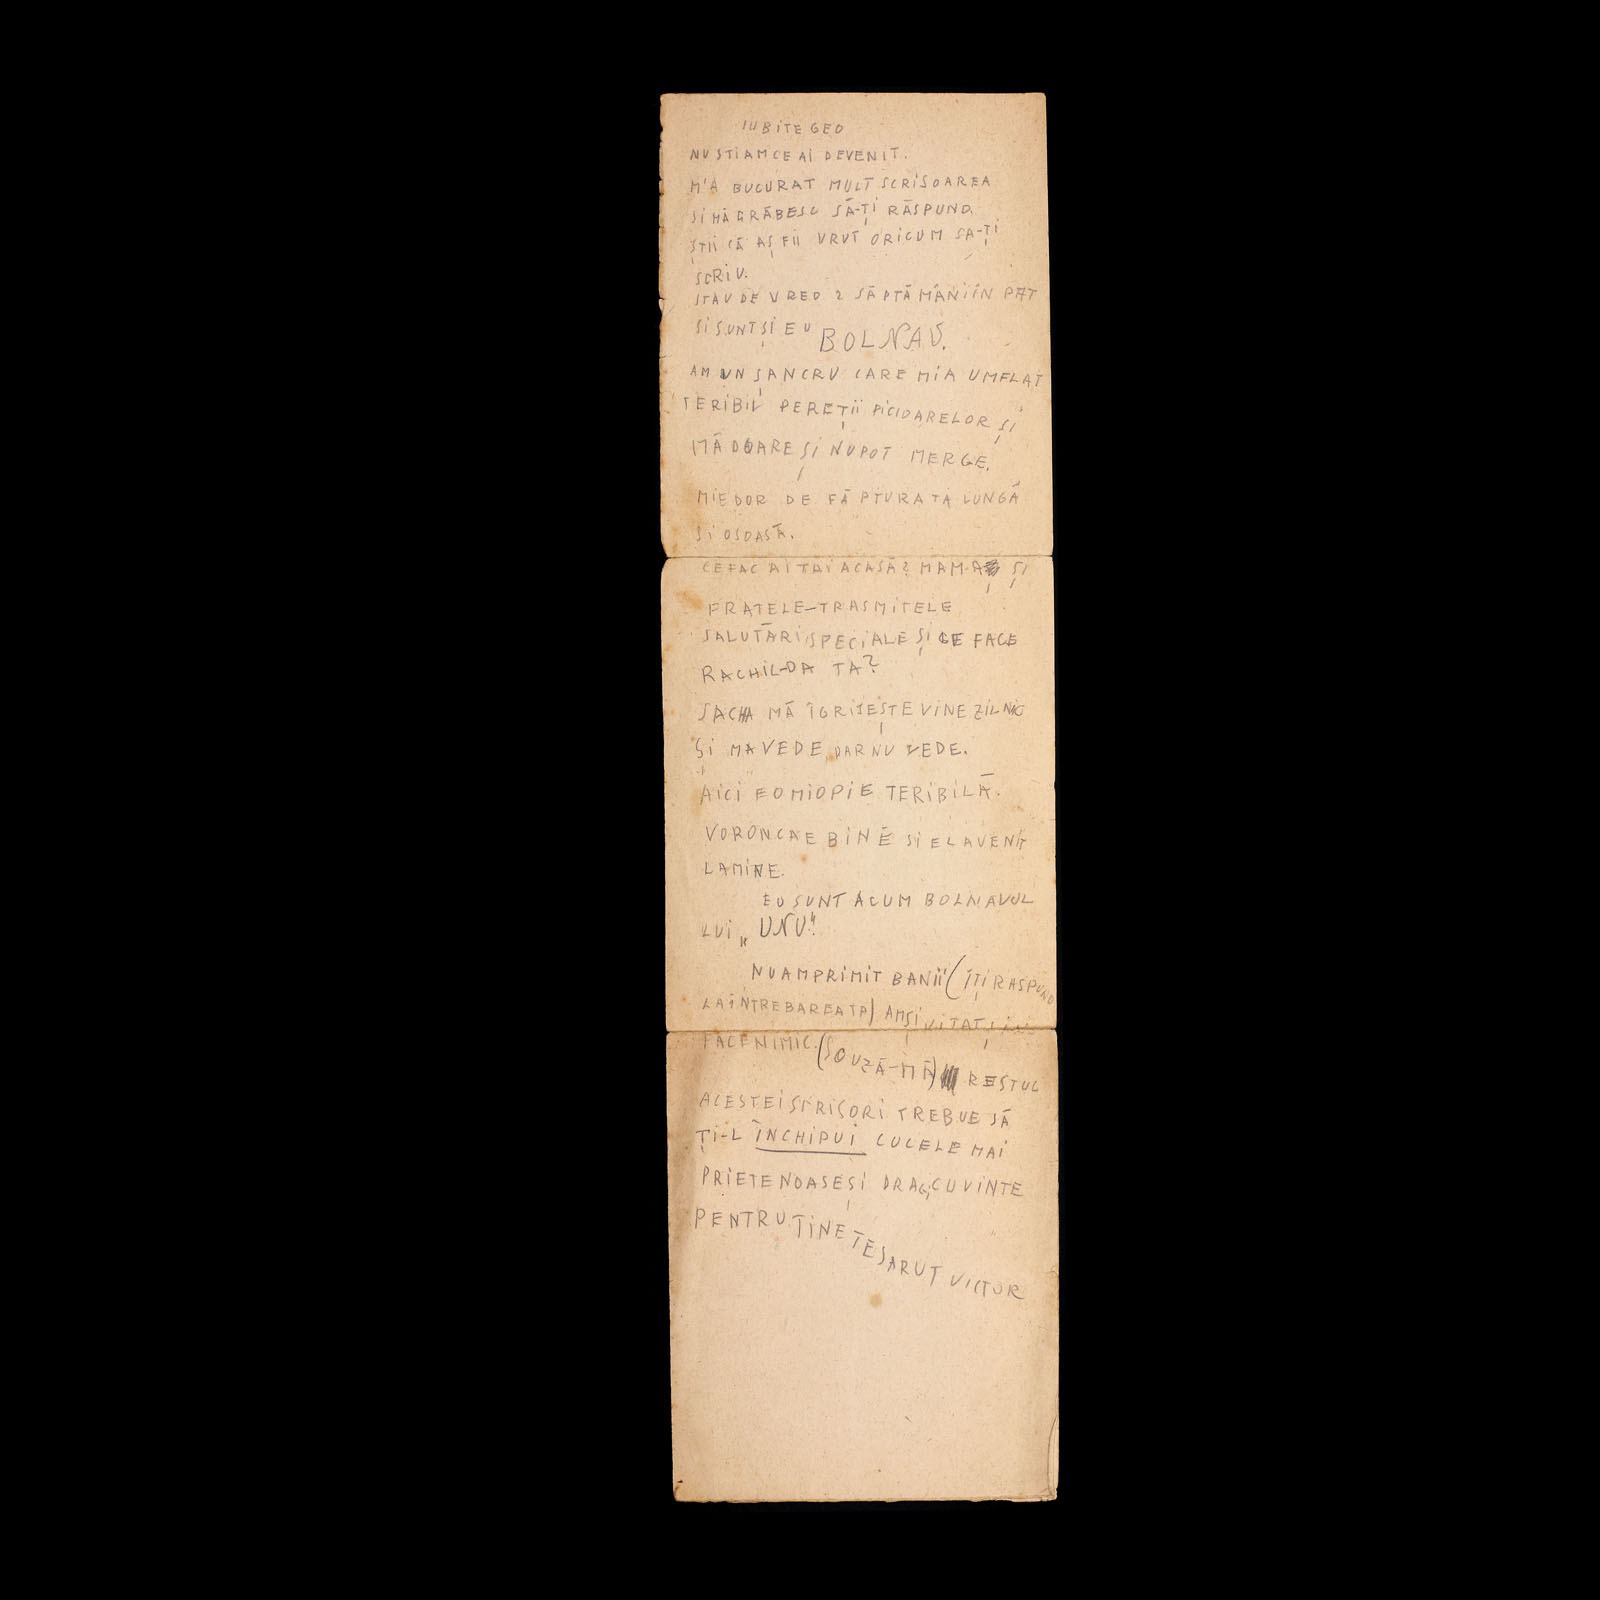 IUBITE GEO
NU STIAM CE AI DEVENIT.
M'A BUCURAT MULT SCRISOAREA
SI MĂ GRĂBESC SĂ-ȚI RĂSPUND.
ȘTII CĂ AȘ FII VRUT ORICUM SA-ȚI
SCRIU.
STAU DE VREO 2 SĂPTĂMÂNI ÎN PAT
SI SUNT ȘI EU BOLNAV.
AM UN ȘANCRU CARE MIA UMFLAT
TERIBIL PEREȚII PICIOARELOR ȘI
MĂ DOARE ȘI NU POT MERGE.
MIE DOR DE FĂPTURA TA LUNGĂ
SI OSOASĂ.
CE FAC AI TĂI ACASĂ? MAMA ȘI
FRATELE-TRASMITELE
SALUTĂRI SPECIALE ȘI CE FACE
RACHILDA TA?
SACHA MĂ ÎGRIJEȘTE VINE ZILNIC
ȘI MA VEDE, DAR NU VEDE.
AICI E O MIOPIE TERIBILĂ.
VORONCA E BINE SI EL A VENIT
LA MINE.
EU SUNT ACUM BOLNAVUL
LUI „UNU".
NU AM PRIMIT BANII (ÎȚI RASPUND
LA ÎNTREBAREA TA) AM ȘI UITAT ȘI
FACE NIMIC. (SCUZĂ-MĂ) RESTUL
ACESTEI SCRISORI TREBUE SĂ
ȚI-L ÎNCHIPUI CU CELE MAI
PRIETENOASE ȘI DRAGI CUVINTE
PENTRU TINE TE SARUT VICTOR